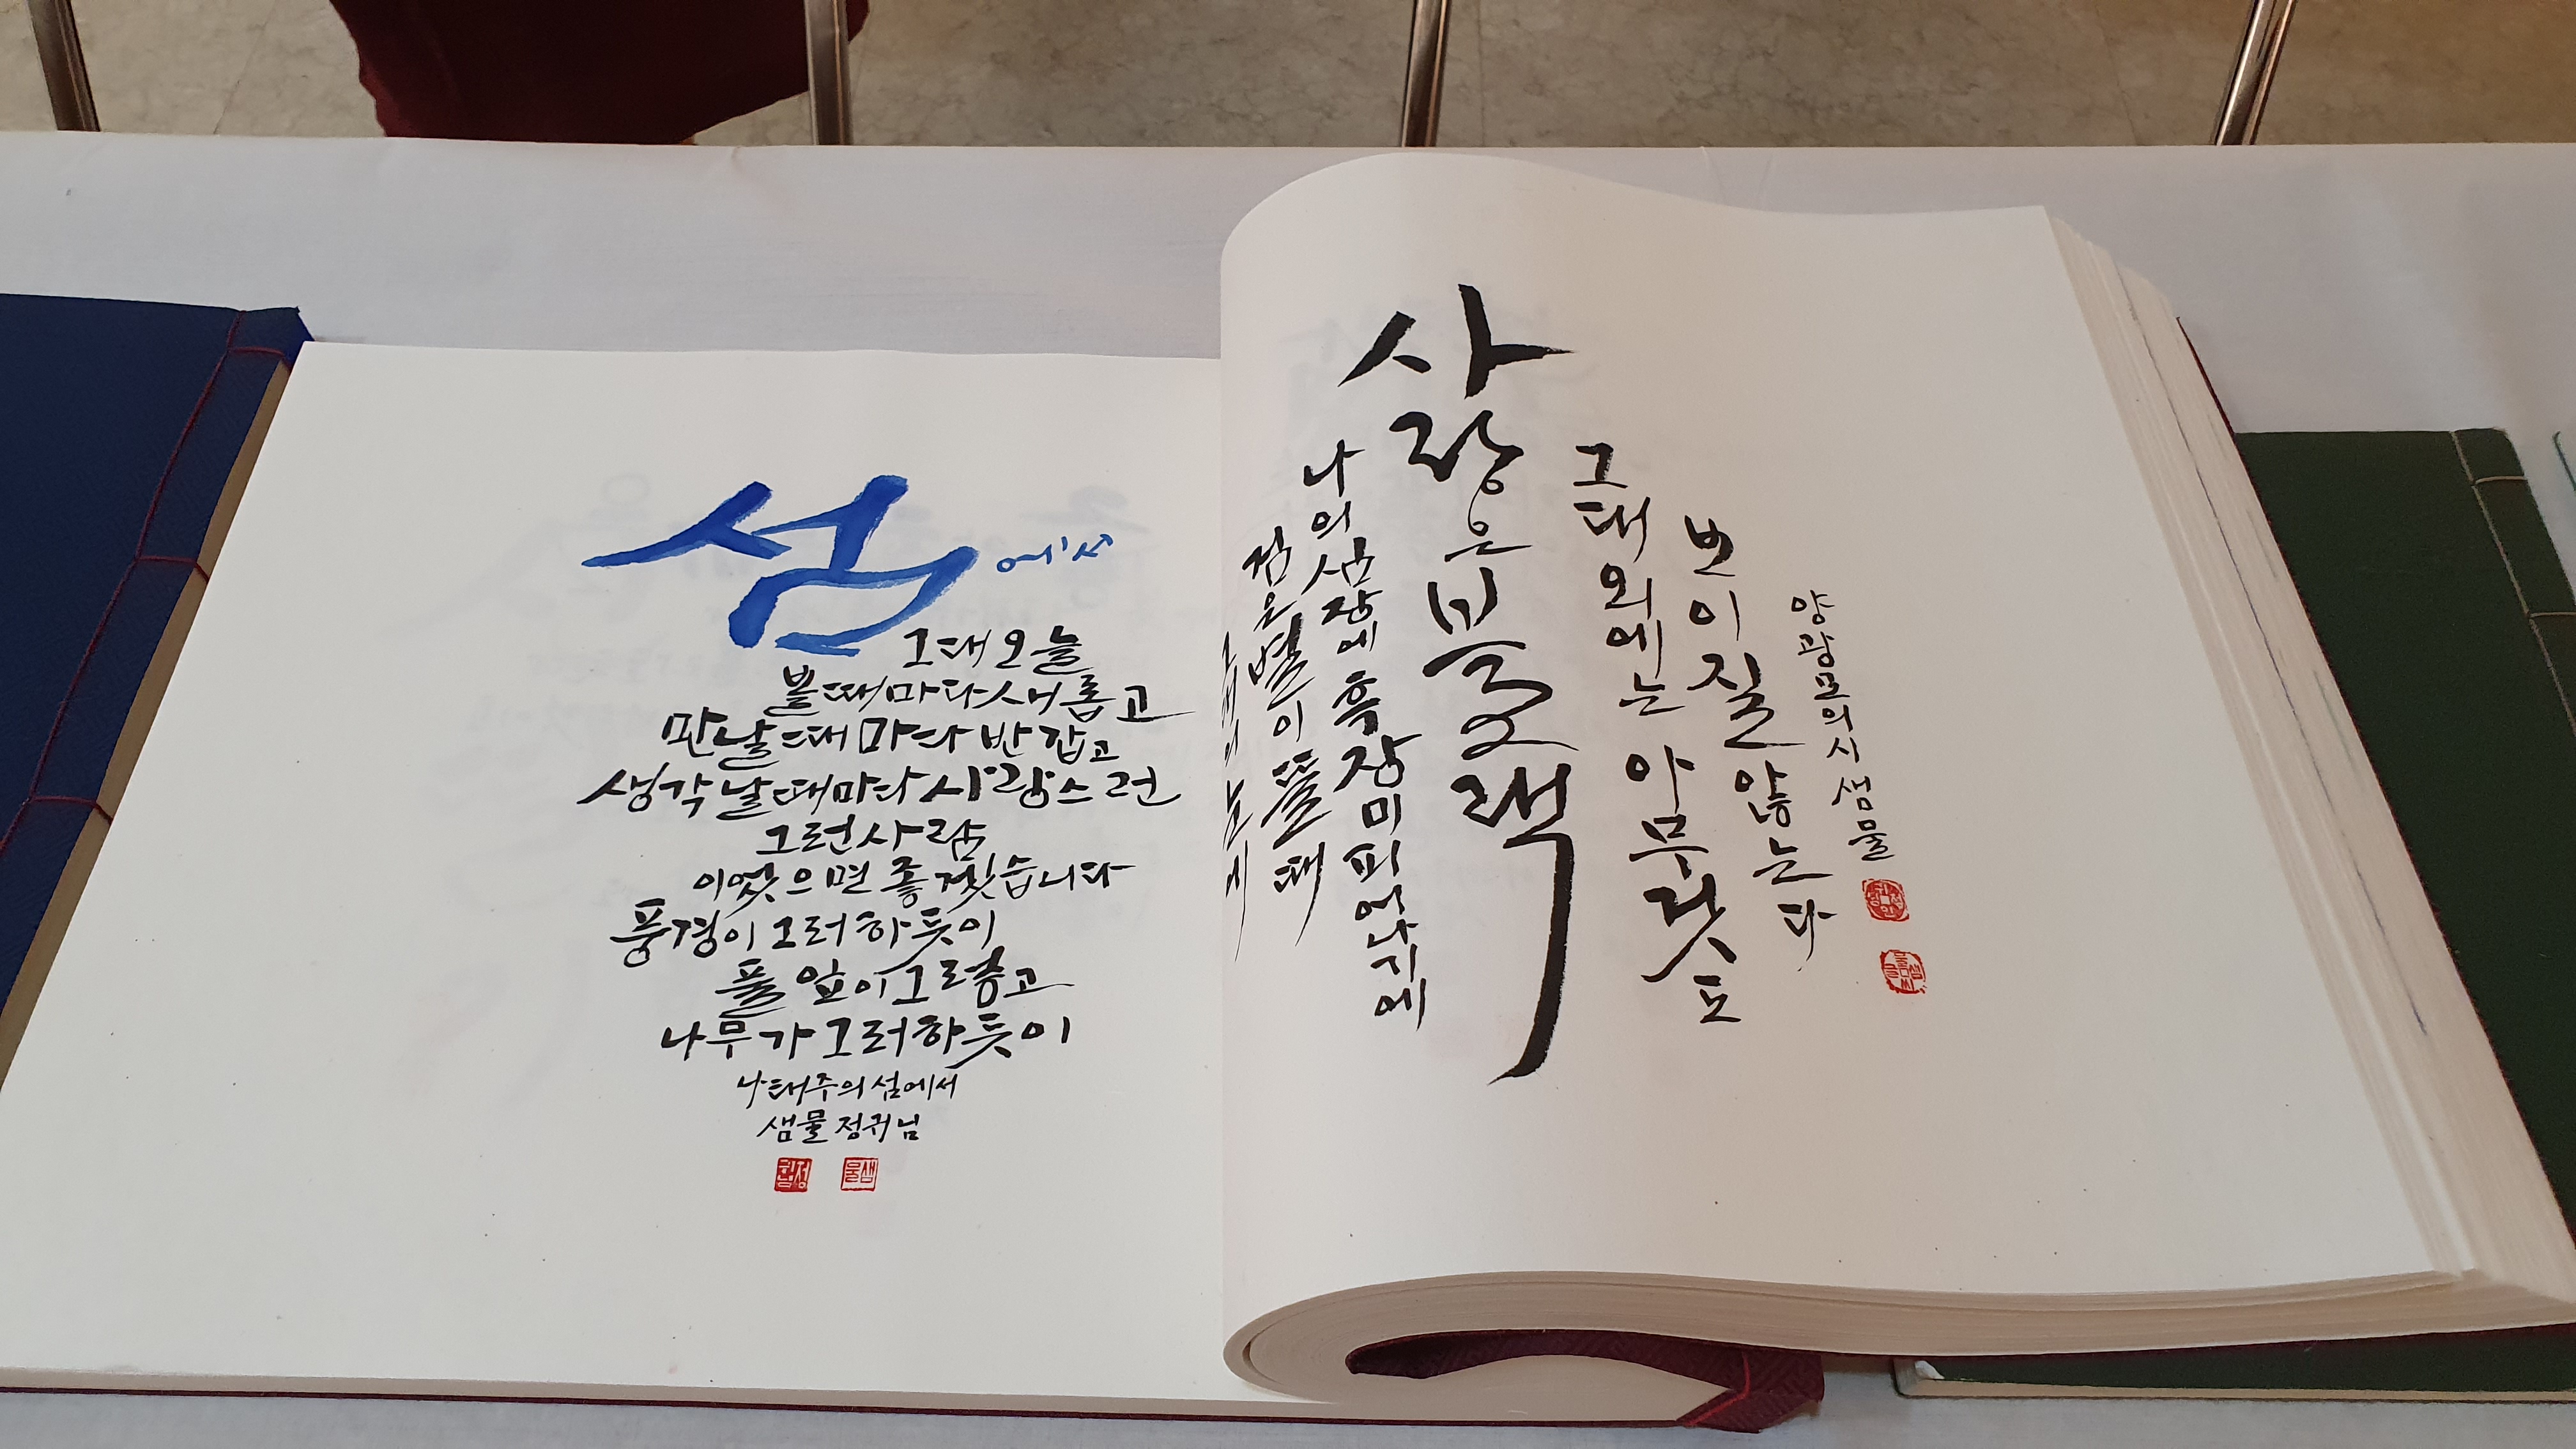 섬에서
그대 오늘
볼때마다 새롭고
만날때마다 반갑고
생각날때마다 사랑스런
그런사람
이었으면 좋겠습니다
풍경이 그러하듯이
풀잎이 그렇고
나무가 그러하듯이
나태주의 섬에서
샘물 정귀님
정귀님
샘물
사랑은 블랙
그대의 눈에
검은 별이 뜰 때
나의 심장에 흑장미 피어나기에
그대 외에는 아무것도
보이질 않는다
양광모의 시 샘물